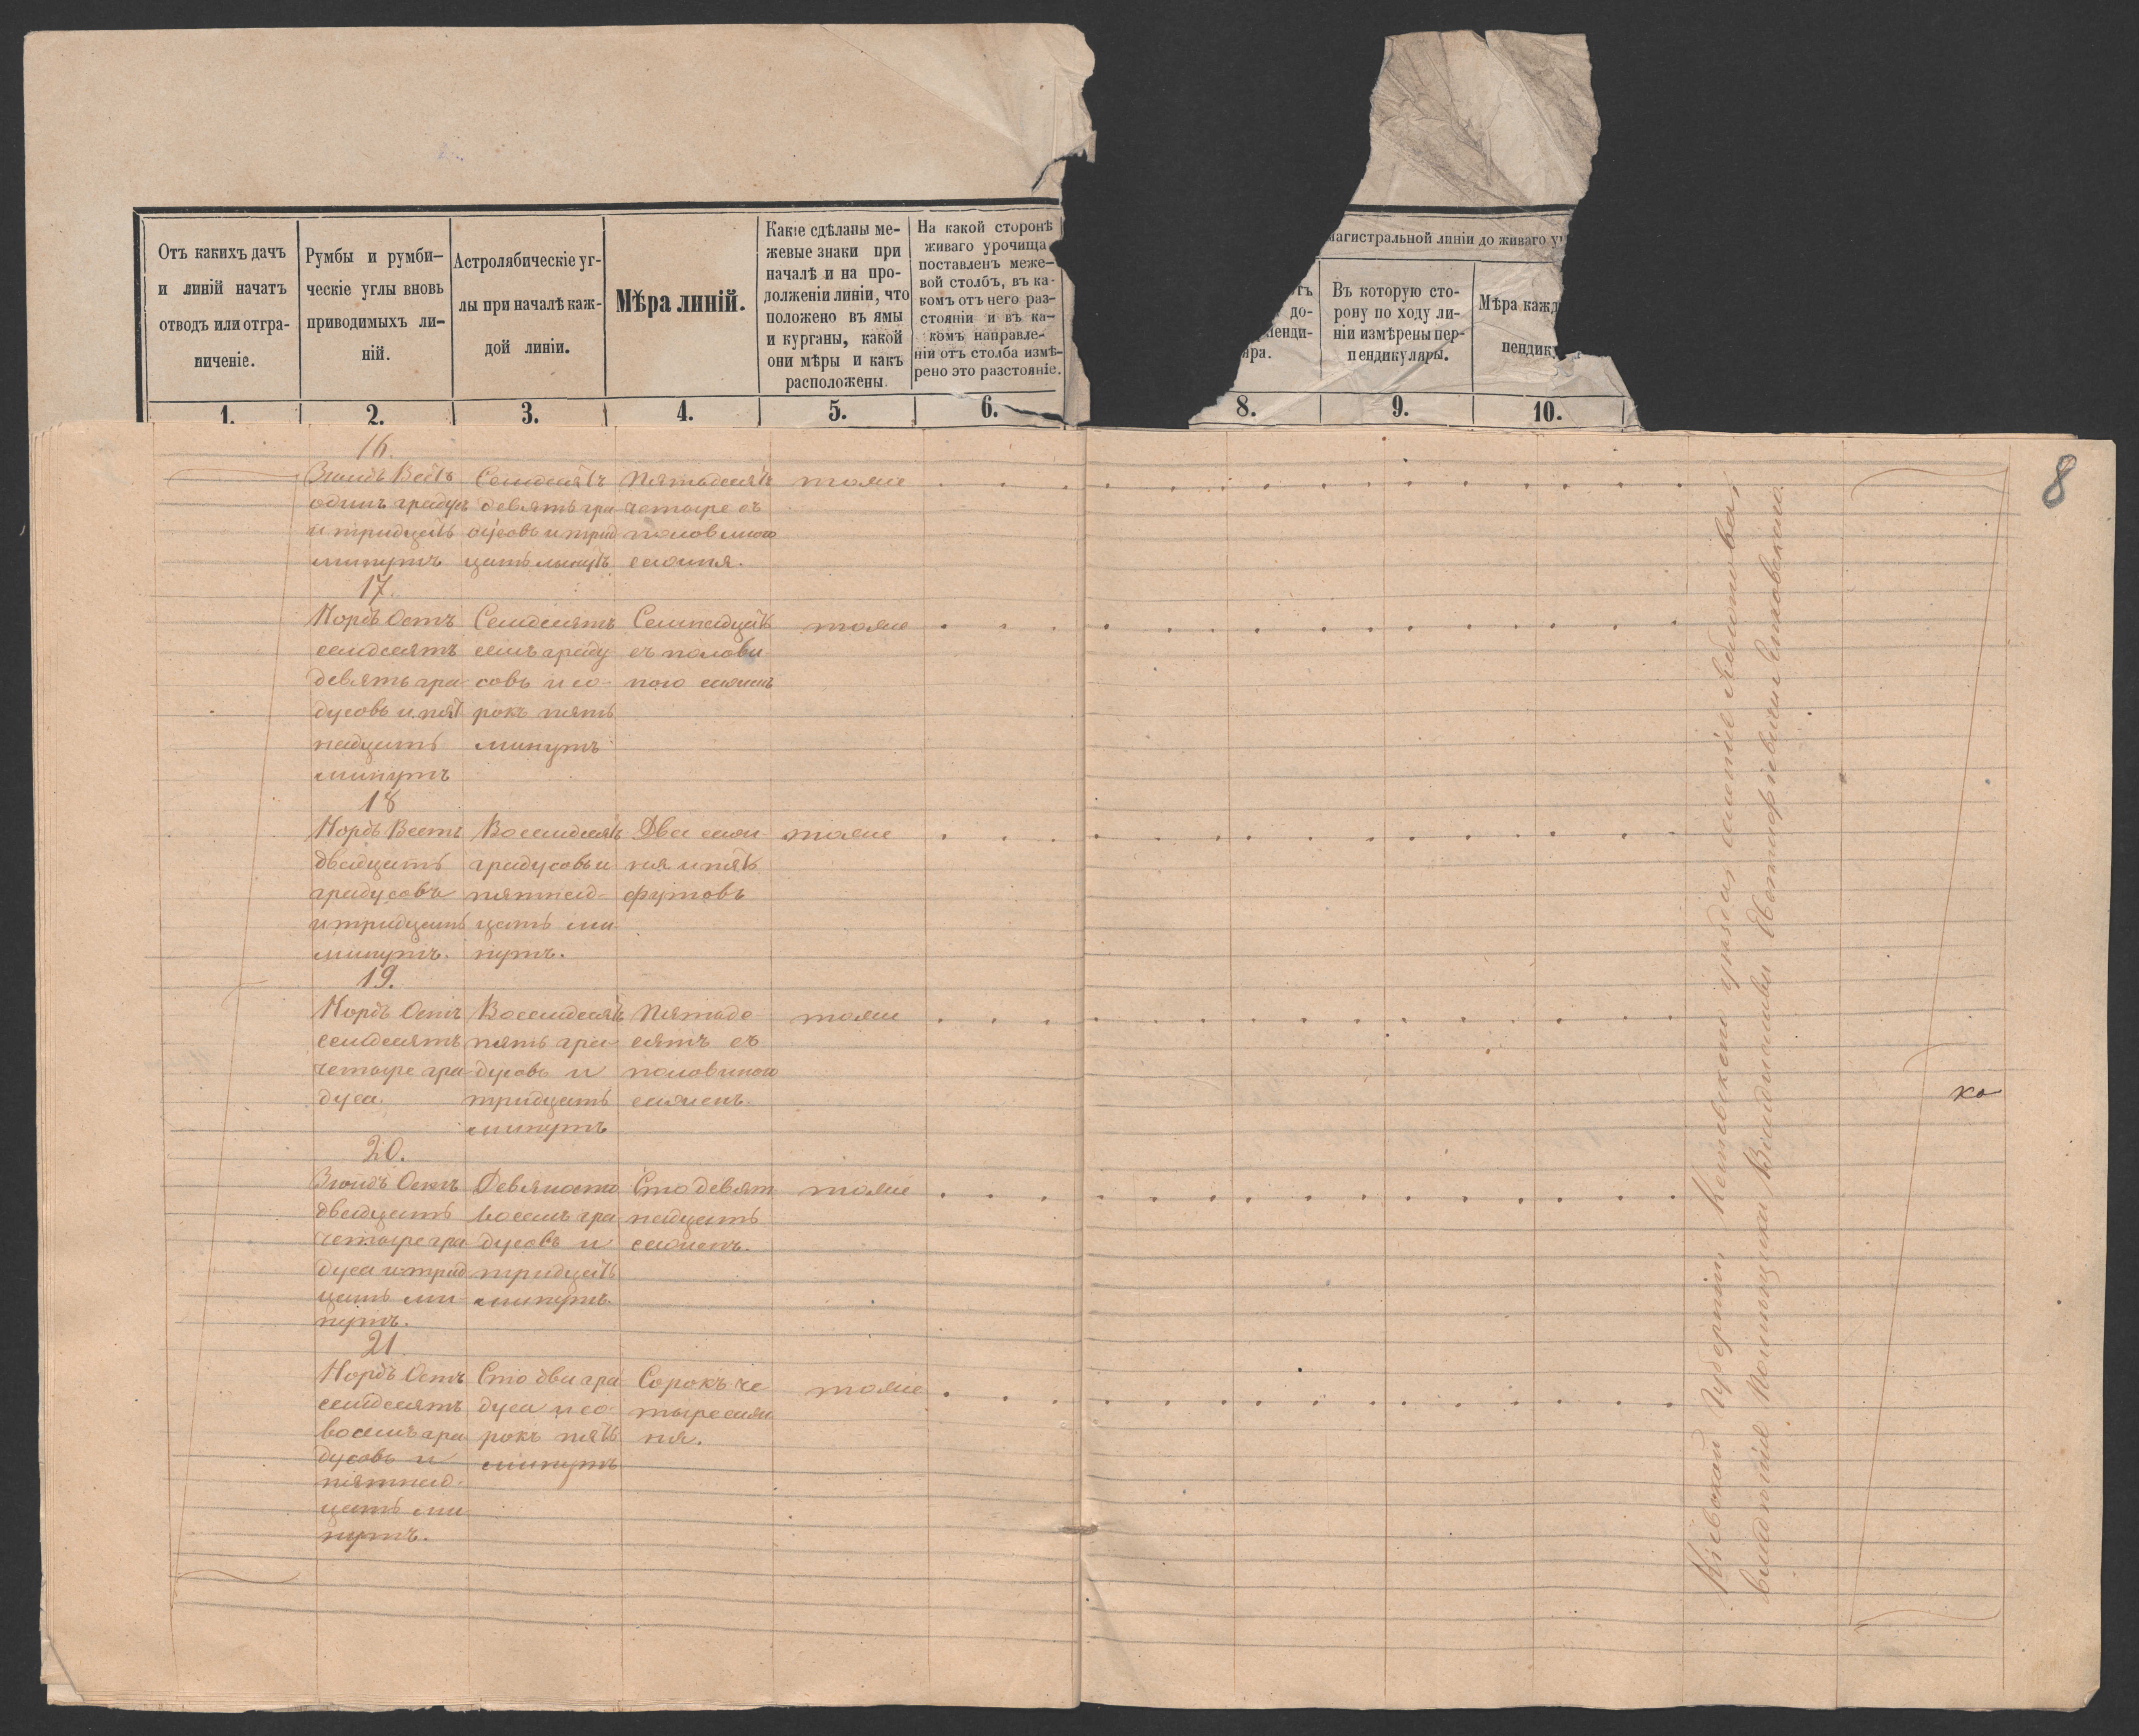 Отъ какихъ дачъ
и линій начатъ
отводъ или отгра-
ниченіе.
Румбы и румби-
ческіе углы вновь
приводимыхъ ли-
ній.
Астролябическіе уг-
лы при началѣ каж-
дой линіи.
Мѣра линій.
Какіе сдѣланы ме-
жевые знаки при
началѣ и на про-
долженіи линіи, что
положено въ ямы
и курганы, какой
они мѣры и какъ
расположены.
На какой сторонѣ
живаго урочища
поставленъ меже-
вой столбъ, въ ка-
комъ отъ него раз-
стояніи и въ ка-
комъ направле-
ніи отъ столба измѣ-
рено это разстояніе.
магистральной линіи до живаго
до-
пенди-
яра.
Въ которую сто-
рону по ходу ли-
ніи измѣрены пер-
пендикуляры.
Мѣра кажд
пендику
1. 2. 3. 4. 5. 6. 8. 9. 10.
8
16.
Зюйдъ Вестъ
одинъ градусъ
и тридцать
минутъ
Семдесятъ
девять гра-
дусовъ и трид
цать минутъ
Пятьдесятъ
четыре съ
половиною
сажня.
тоже
17.
Нордъ Остъ
семдесятъ
девять гра-
дусовъ и пят
надцать
минутъ
Семдесятъ
семь граду-
совъ и со-
рокъ пять
минутъ
Семнадцать
съ полови
ною сажень
тоже
18
Нордъ Вестъ
двадцать
градусовъ
и тридцать
минутъ.
Восемдесятъ
градусовъ и
пятнад-
цать ми
нутъ.
Два саж-
ня и пять
футовъ
тоже
19.
Нордъ Остъ
семдесятъ
четыре гра-
дуса.
Восемдесятъ
пять гра-
дусовъ и
тридцать
минутъ
Пятьде
сятъ съ
половиною
сажень.
тоже
20.
Зюйдъ Остъ
двадцать
четыре гра
дуса и трид
цать ми-
нутъ.
Девяносто
восемь гра-
дусовъ и
тридцать
минутъ.
Сто девят
надцать
сажень.
тоже
21.
Нордъ Остъ
семдесятъ
восемь гра
дусовъ и
пятнад-
цать ми
нутъ.
Сто два гра
дуса и со-
рокъ пять
минутъ
Сорокъ че
тыре саж
ня.
тоже
Кіевской Губерніи Каневскаго уѣзда, имѣніе
владѣніе Помѣщика Владислава
ко